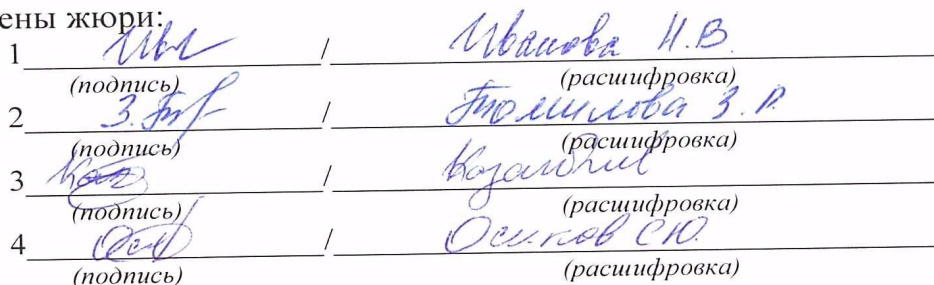 ены жюри:
1 / Иванова Н.В.
(подпись) (расшифровка)
2 З. / Томилова З.Р.
(подпись) (расшифровка)
3 /
(подпись) (расшифровка)
4 / Осипов С.Ю.
(подпись) (расшифровка)